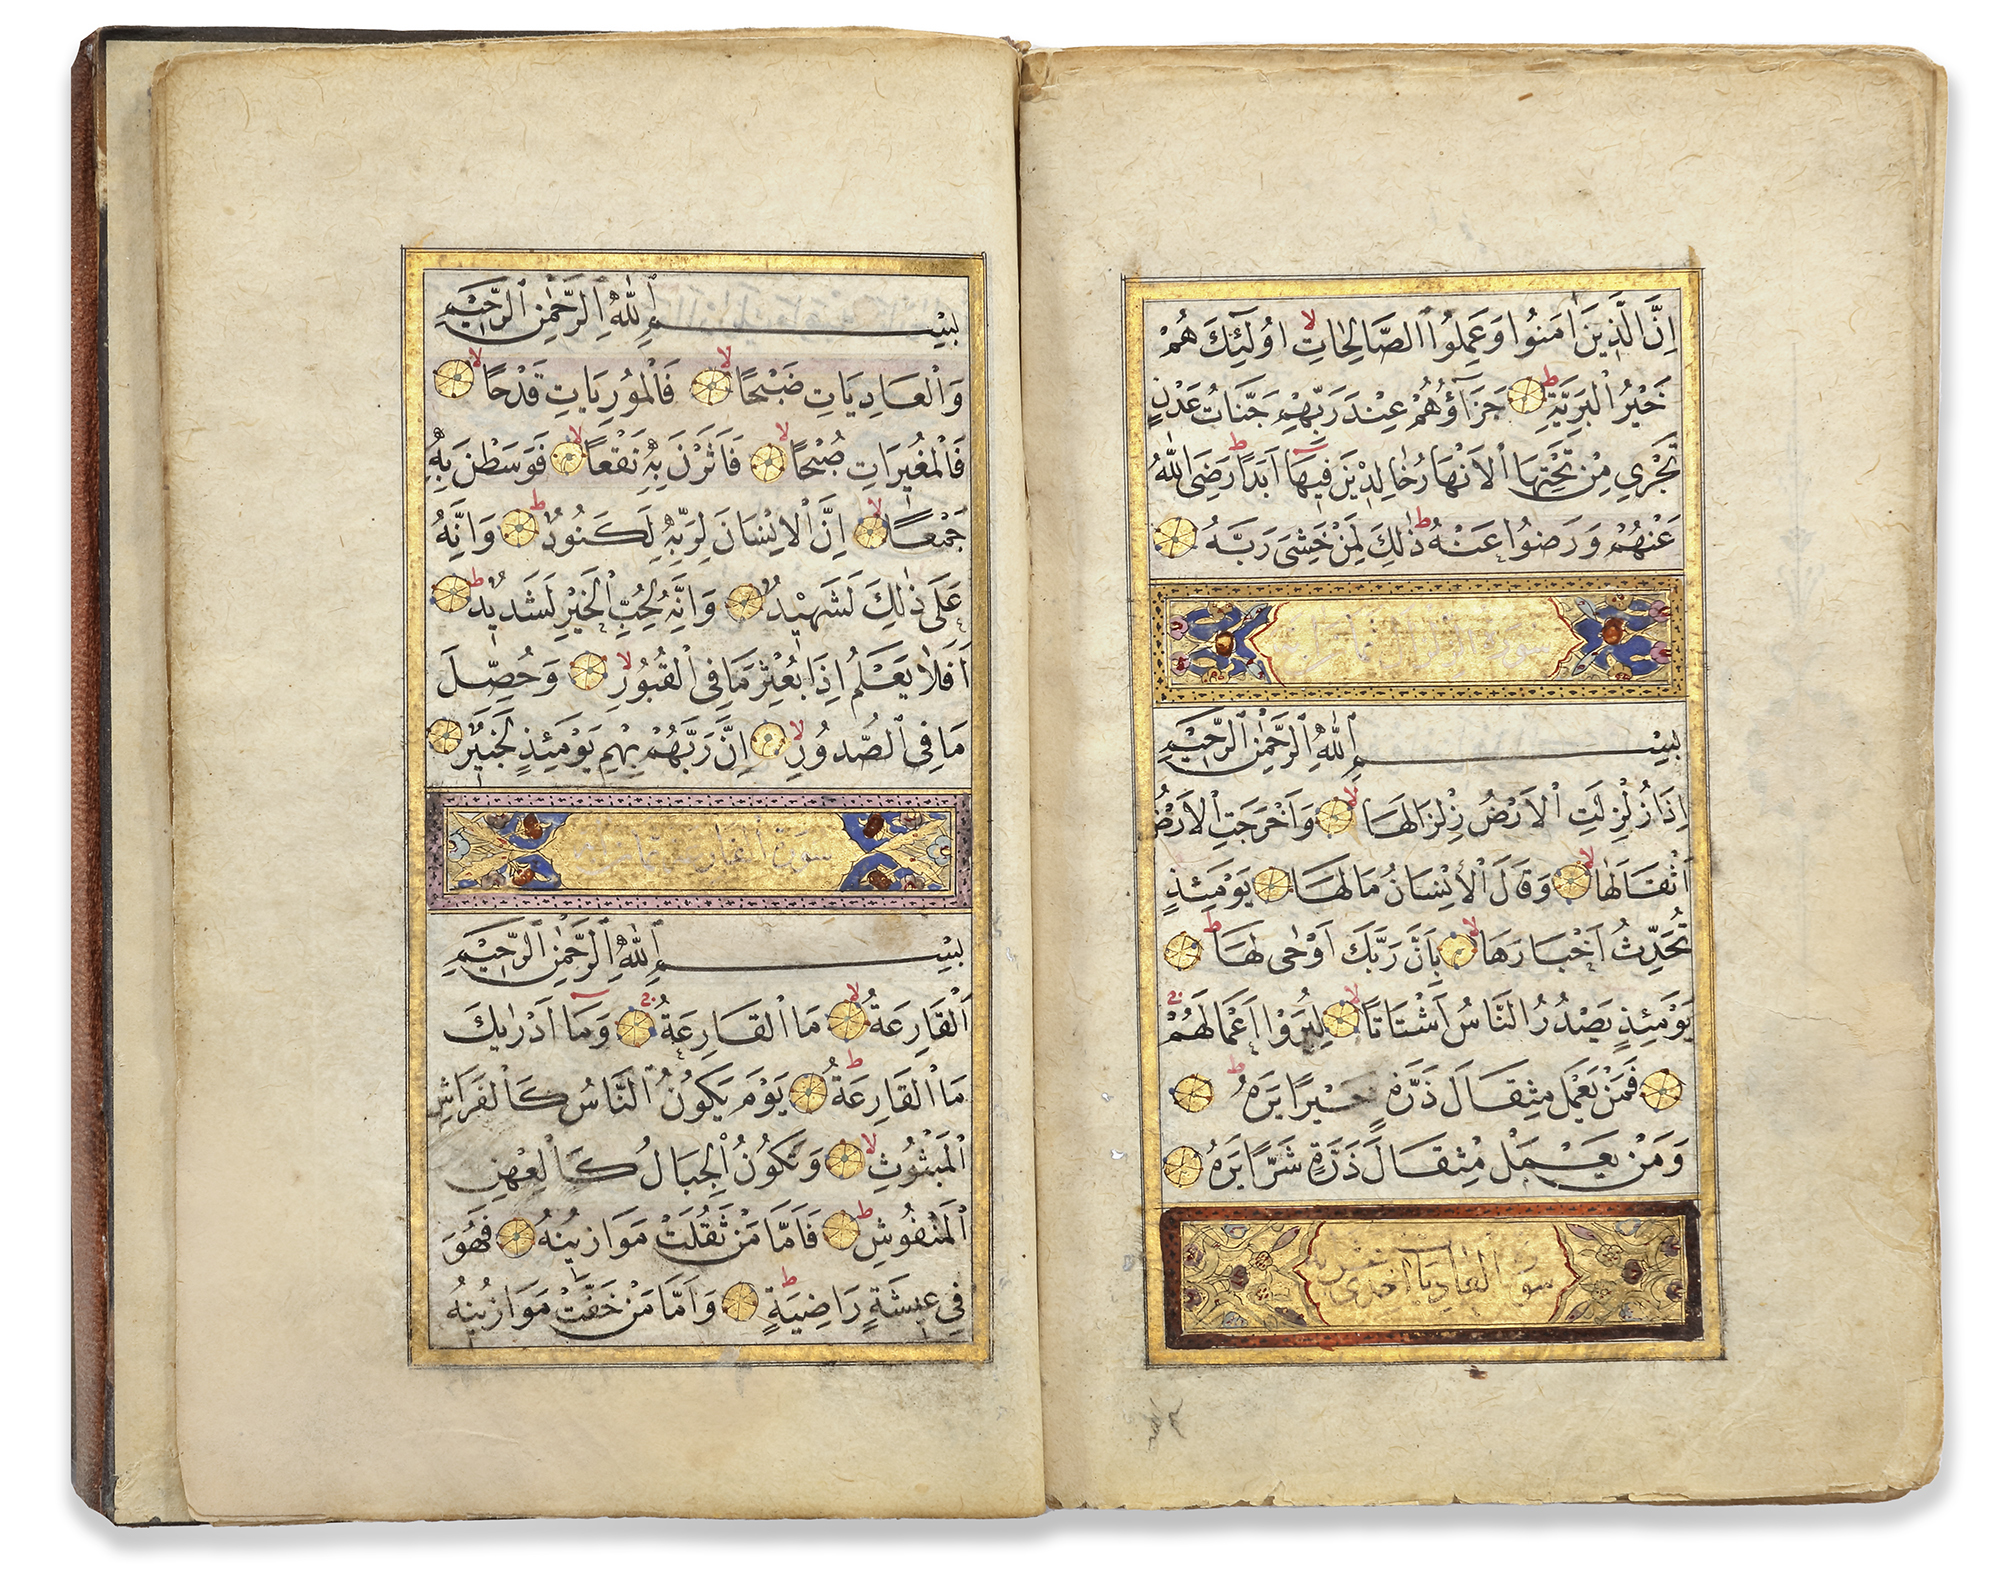 اِنَّ الَّذِينَ اٰمَنُوا وَعَمِلُوا الصَّالِحَاتِ اُولٰٓئِكَ هُمْ
خَيْرُ الْبَرِيَّةِ جَزَآؤُهُمْ عِنْدَ رَبِّهِمْ جَنَّاتُ عَدْنٍ
تَجْرِي مِنْ تَحْتِهَا الْاَنْهَارُ خَالِدِينَ فِيهَا اَبَدًا رَضِيَ اللّٰهُ
عَنْهُمْ وَرَضُوا عَنْهُ ذٰلِكَ لِمَنْ خَشِيَ رَبَّهُ
سورة الزلزال ثمان
بِسْمِ اللّٰهِ الرَّحْمٰنِ الرَّحِيمِ
اِذَا زُلْزِلَتِ الْاَرْضُ زِلْزَالَهَا وَاَخْرَجَتِ الْاَرْضُ
اَثْقَالَهَا وَقَالَ الْاِنْسَانُ مَالَهَا يَوْمَئِذٍ
تُحَدِّثُ اَخْبَارَهَا بِاَنَّ رَبَّكَ اَوْحٰى لَهَا
يَوْمَئِذٍ يَصْدُرُ النَّاسُ اَشْتَاتًا لِيُرَوْا اَعْمَالَهُمْ
فَمَنْ يَعْمَلْ مِثْقَالَ ذَرَّةٍ خَيْرًا يَرَهُ
وَمَنْ يَعْمَلْ مِثْقَالَ ذَرَّةٍ شَرًّا يَرَهُ
سورة العاديات احدى عشرية
بِسْمِ اللّٰهِ الرَّحْمٰنِ الرَّحِيمِ
وَالْعَادِيَاتِ ضَبْحًا فَالْمُورِيَاتِ قَدْحًا
فَالْمُغِيرَاتِ صُبْحًا فَاَثَرْنَ بِهِ نَقْعًا فَوَسَطْنَ بِهِ
جَمْعًا اِنَّ الْاِنْسَانَ لِرَبِّهِ لَكَنُودٌ وَاِنَّهُ
عَلَى ذٰلِكَ لَشَهِيدٌ وَاِنَّهُ لِحُبِّ الْخَيْرِ لَشَدِيدٌ
اَفَلَا يَعْلَمُ اِذَا بُعْثِرَ مَا فِي الْقُبُورِ وَحُصِّلَ
مَا فِي الصُّدُورِ اِنَّ رَبَّهُمْ بِهِمْ يَوْمَئِذٍ لَخَبِيرٌ
سورة القارعة ثمان
بِسْمِ اللّٰهِ الرَّحْمٰنِ الرَّحِيمِ
اَلْقَارِعَةُ مَا الْقَارِعَةُ وَمَا اَدْرٰيكَ
مَا الْقَارِعَةُ يَوْمَ يَكُونُ النَّاسُ كَالْفَرَاشِ
الْمَبْثُوثِ وَتَكُونُ الْجِبَالُ كَالْعِهْنِ
الْمَنْفُوشِ فَاَمَّا مَنْ ثَقُلَتْ مَوَازِينُهُ فَهُوَ
فِي عِيشَةٍ رَاضِيَةٍ وَاَمَّا مَنْ خَفَّتْ مَوَازِينُهُ